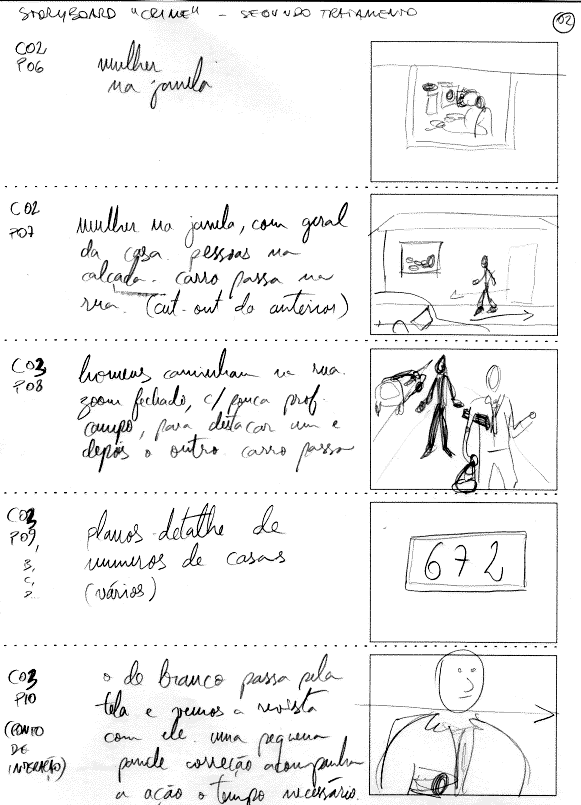 STORYBOARD "CRIME" - SEGUNDO TRATAMENTO
02
C02
P06
mulher
na janela
C02
P07
mulher na janela, com geral
da casa. pessoas na
calçada. carro passa na
rua. (cut-out do anterior)
C03
P08
homens caminham na rua.
zoom fechado, c/ pouca prof.
campo, para destacar um e
depois o outro. carro passa
C03
P09,
B,
C,
D
planos detalhe de
numeros de casas
(vários)
672
C03
P10
(PONTO
DE
INTERAÇÃO)
o de branco passa pela
tela e vemos a revista
com ele. uma pequena
pan de correção acompanha
a ação o tempo necessário.